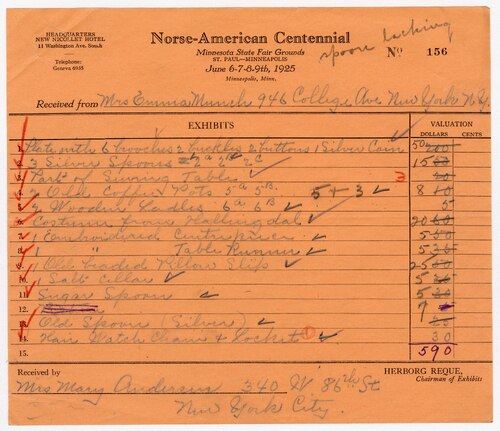 HEADQUARTERS
NEW NICOLLET HOTEL
11 Washington Ave. South
Telephone:
Geneva 6935
Norse-American Centennial
Minnesota State Fair Grounds
ST. PAUL—MINNEAPOLIS
June 6-7-8-9th, 1925
Minneapolis, Minn.
spoon lacking
No 156
Received from Mrs Emma Munch 946 College Ave New York N.Y.
EXHIBITS
VALUATION
DOLLARS CENTS
1. Plate with 6 brooches 2 buckles 2 buttons 1 Silver Coin 50
2. 3 Silver Spoons 2a 2b 2c 15
3. Part of Swing Table 3
4. 2 Old Coffee Pots 5a 5B. 5 + 3 8
5. 2 Wooden Ladles 6a 6B 5
6. Costume from Hallingdal 20
7. 1 Embroidered Centerpiece 5
8. 1 " Table Runner 5
9. 1 Old beaded Pillow Slip 25
10. 1 Salt Cellar 5
11. Sugar Spoon 5
12. 7
13. Old Spoon (Silver)
14. Hair Watch Chain & Locket 1 30
15. 590
Received by
HERBORG REQUE,
Chairman of Exhibits
Mrs Mary Anderson 340 W 86th St
New York City.